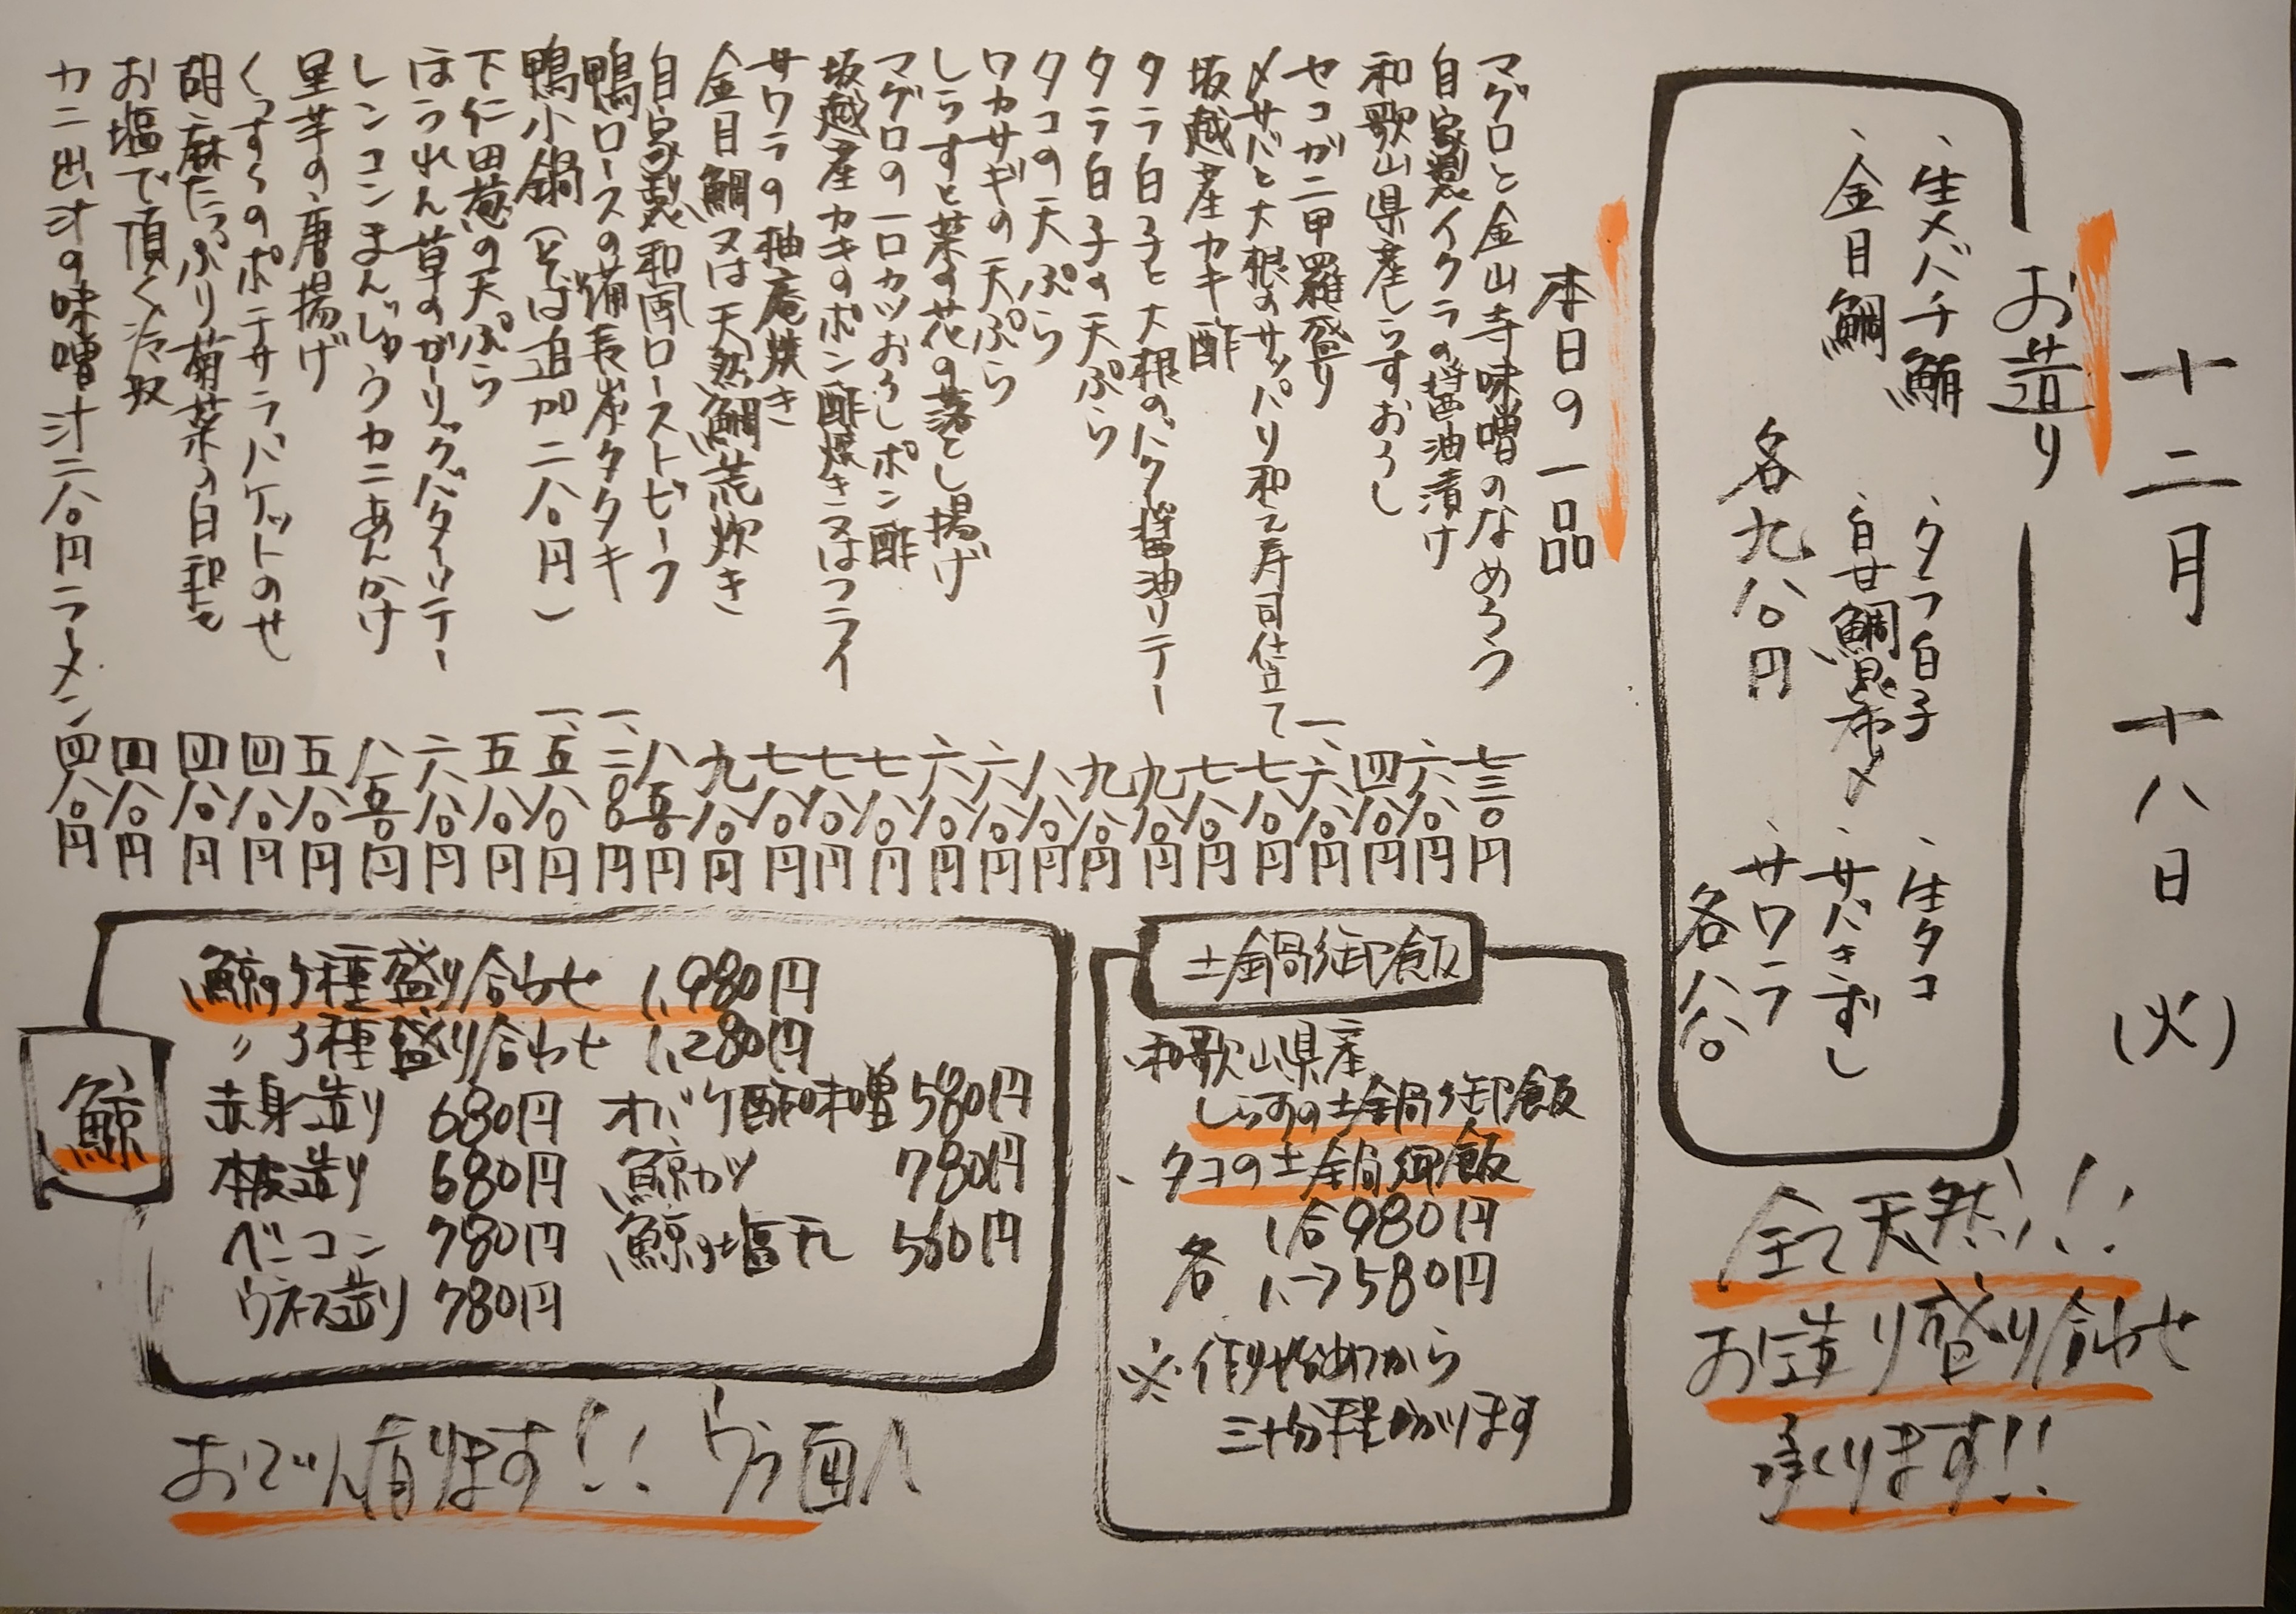 十二月十八日(火)
お造り
、生メバチ鮪 、タラ白子 、生タコ
、金目鯛 、白甘鯛昆布〆 、サバきずし
、サワラ
各九八〇円
各八八〇
全て天然!!
お造り盛り合わせ
承ります!!
本日の一品
マグロと金山寺味噌のなめろう 七三〇円
自家製イクラの醤油漬け 六八〇円
和歌山県産しらすおろし 四八〇円
セコガニ甲羅盛り 一、六八〇円
〆サバと大根のサッパリ和え寿司仕立て 七八〇円
坂越産カキ酢 七八〇円
タラ白子と大根のバタ醤油ソテー 九八〇円
タラ白子の天ぷら 九八〇円
タコの天ぷら 八八〇円
ワカサギの天ぷら 六八〇円
しらすと菜の花の落とし揚げ 六八〇円
マグロの一口カツおろしポン酢 七八〇円
坂越産カキのポン酢焼き又はフライ 七八〇円
サワラの柚庵焼き 七八〇円
金目鯛又は天然鯛荒炊き 九八〇円
自家製和風ローストビーフ 八五〇円
鴨ロースの備長炭タタキ 一、二八〇円
鴨小鍋(そば追加二八〇円) 一、五八〇円
下仁田葱の天ぷら 五八〇円
ほうれん草のガーリックバターソテー 六八〇円
レンコンまんじゅうカニあんかけ 八五〇円
里芋の唐揚げ 五八〇円
くずし のポテサラバケットのせ 四八〇円
胡麻たっぷり菊菜の白和え 四八〇円
お塩で頂く冷奴 四八〇円
カニ出汁の味噌汁二八〇円ラーメン 四八〇円
土鍋御飯
、和歌山県産
しらすの土鍋御飯
、タコの土鍋御飯
各 1合980円
1、5 580円
※作り始めから
三十分程かかります
鯨
、鯨の5種盛り合わせ 1,980円
〃 3種盛り合わせ 1,280円
赤身造り 680円 オバケ酢味噌 580円
本皮造り 680円 鯨カツ 780円
ベーコン 780円 鯨の塩干し 560円
ウネス造り 780円
おでん有ります!! ウラ面へ